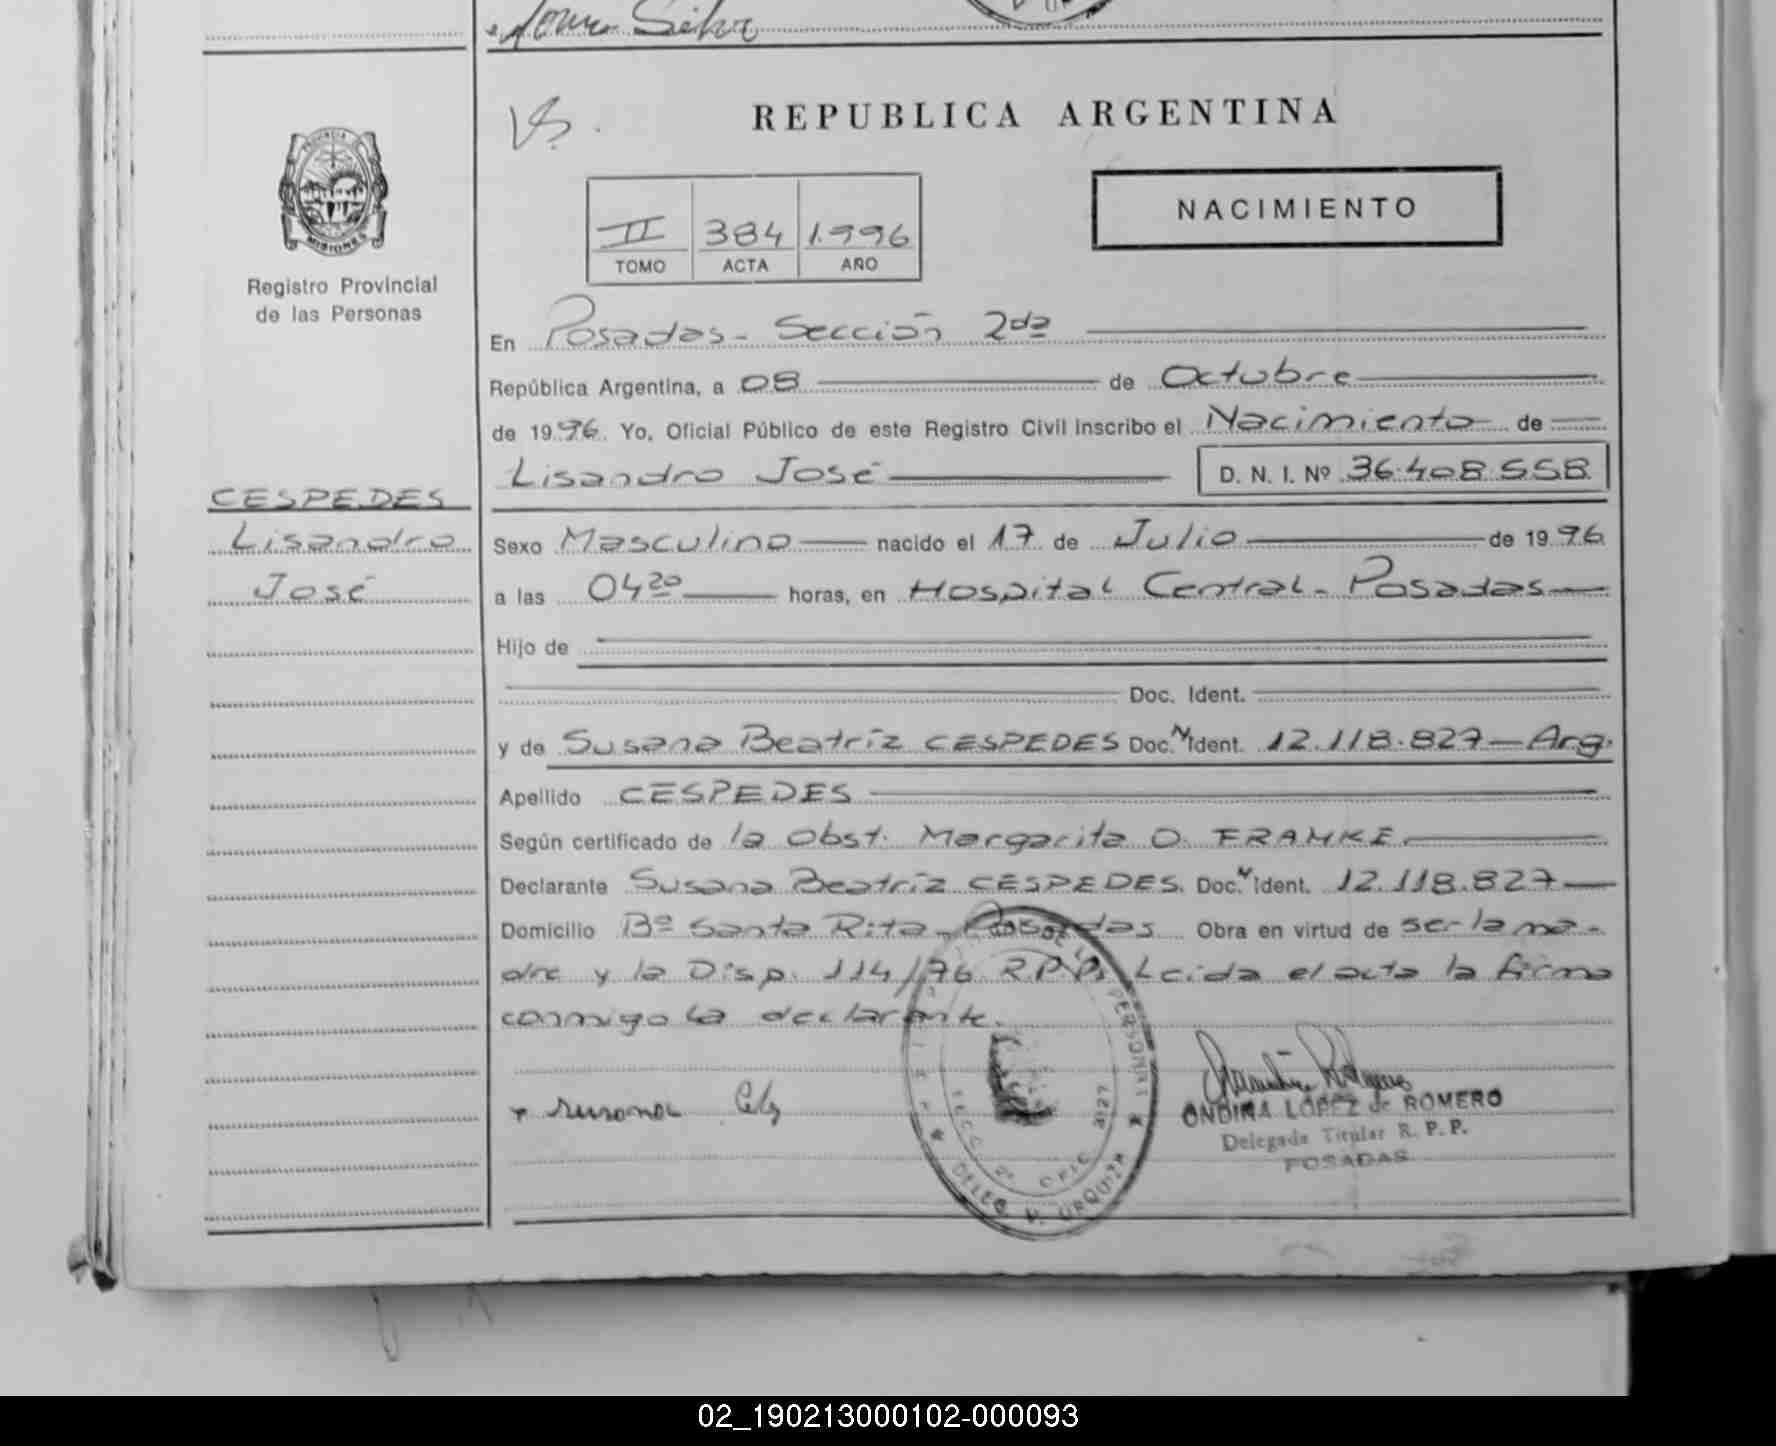 Silva
REPUBLICA ARGENTINA
PROVINCIA
MISIONES
Registro Provincial
de las Personas
II 384 1.996
TOMO ACTA AÑO
NACIMIENTO
En Posadas - Sección 2da
República Argentina, a 08 de Octubre
de 1996. Yo, Oficial Público de este Registro Civil inscribo el Nacimiento de
Lisandro José D. N. I. Nº 36.408.558
CESPEDES
Lisandro
José
Sexo Masculino nacido el 17 de Julio de 1996
a las 04 20 horas, en Hospital Central - Posadas
Hijo de
Doc. Ident.
y de Susana Beatríz CESPEDES Doc. N Ident. 12.118.827 - Arg.
Apellido CESPEDES
Según certificado de la Obst. Margarita O. FRAMKE
Declarante Susana Beatríz CESPEDES. Doc. N Ident. 12.118.827
Domicilio Bº Santa Rita - Posadas Obra en virtud de ser la ma-
dre y la Disp. 114/76 R.P.P. Leída el acta la firma
conmigo la declarante.
PERSONAS
DELEG V. URQUIZA
OFIC
Susana
ONDINA LOPEZ de ROMERO
Delegada Titular R. P. P.
POSADAS
02_190213000102-000093